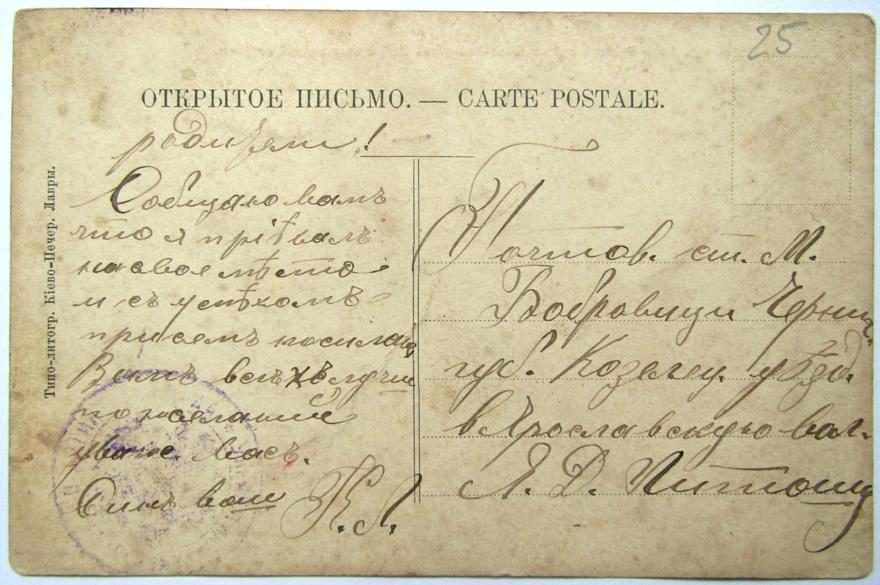 25
ОТКРЫТОЕ ПИСЬМО. — CARTE POSTALE.
Типо-литогр. Кіево-Печер. Лавры.
родители!
Сообщаю вамъ
что я пріѣхалъ
на свое мѣсто
и съ успѣхомъ
при семъ посилаю
Вамъ всѣхъ лучш
пожеланий
уваж. Васъ.
Сынъ ваш
К. Л.
Почтов. ст. М.
Бобровици Черниг.
губ. Козелец. уѣзд.
в Ярославскую вол.
Я. Д.